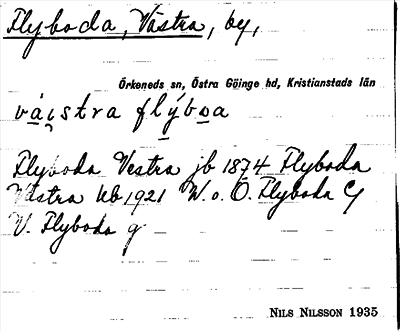 Flyboda, Västra, by,
Örkeneds sn, Östra Göinge hd, Kristianstads län
Flyboda Vestra jb 1874 Flyboda
Västra kb 1921 V. o. Ö. Flyboda Cy
V. Flyboda g
NILS NILSSON 1935